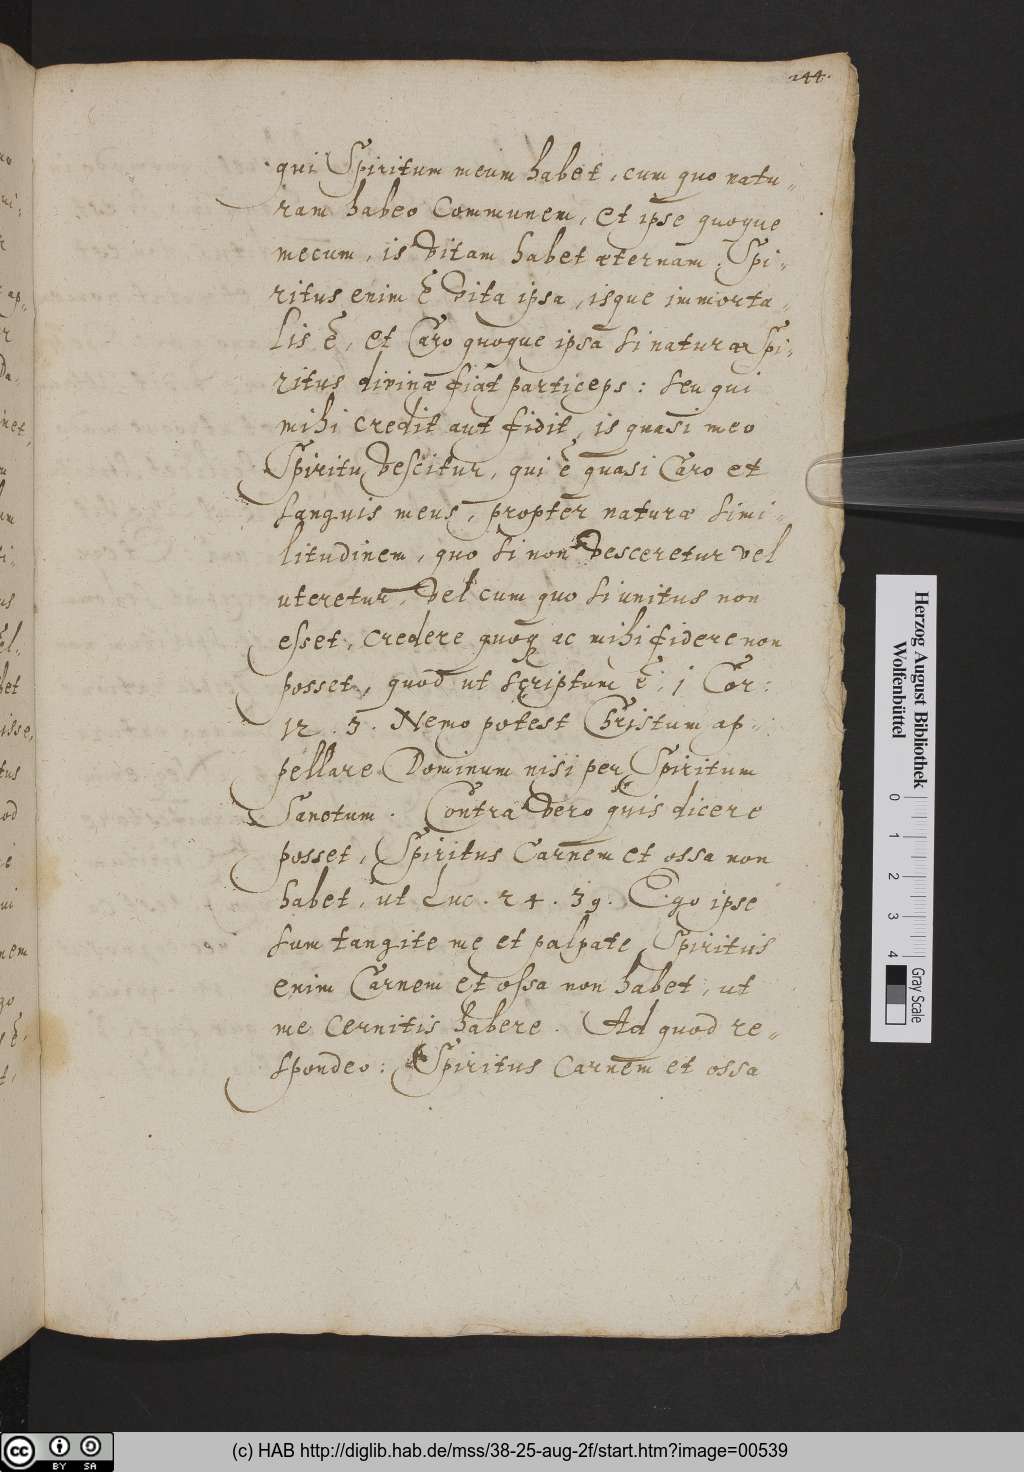 244.
qui Spiritum meum habet, cum quo natu-
ram habeo Communem, et ipse quoque
mecum, is vitam habet æternam. Spi-
ritus enim ē vita ipsa, isque immorta-
lis ē, et Caro quoque ipsa si naturæ Spi-
ritus divinæ fiat particeps: seu qui
mihi credit aut fidit, is quasi meo
Spiritu vescitur, qui ē quasi Caro et
sanguis meus, propter naturæ simi-
litudinem, quo si non vesceretur vel
uteretur, vel cum quo si unitus non
esset, credere quoq ac mihi fidere non
posset, quod ut scriptum ē, 1 Cor:
12. 3. Nemo potest Christum ap-
pellare Dominum nisi per Spiritum
Sanctum. Contra vero quis dicere
posset, Spiritus Carnem et ossa non
habet, ut Luc. 24. 39. Ego ipse
sum tangite me et palpate, Spiritus
enim Carnem et ossa non habet, ut
me Cernitis habere. Ad quod re-
spondeo: Spiritus Carnem et ossa
Herzog August Bibliothek
Wolfenbüttel
0 1 2 3 4
Gray Scale
cc BY SA
(c) HAB http://diglib.hab.de/mss/38-25-aug-2f/start.htm?image=00539